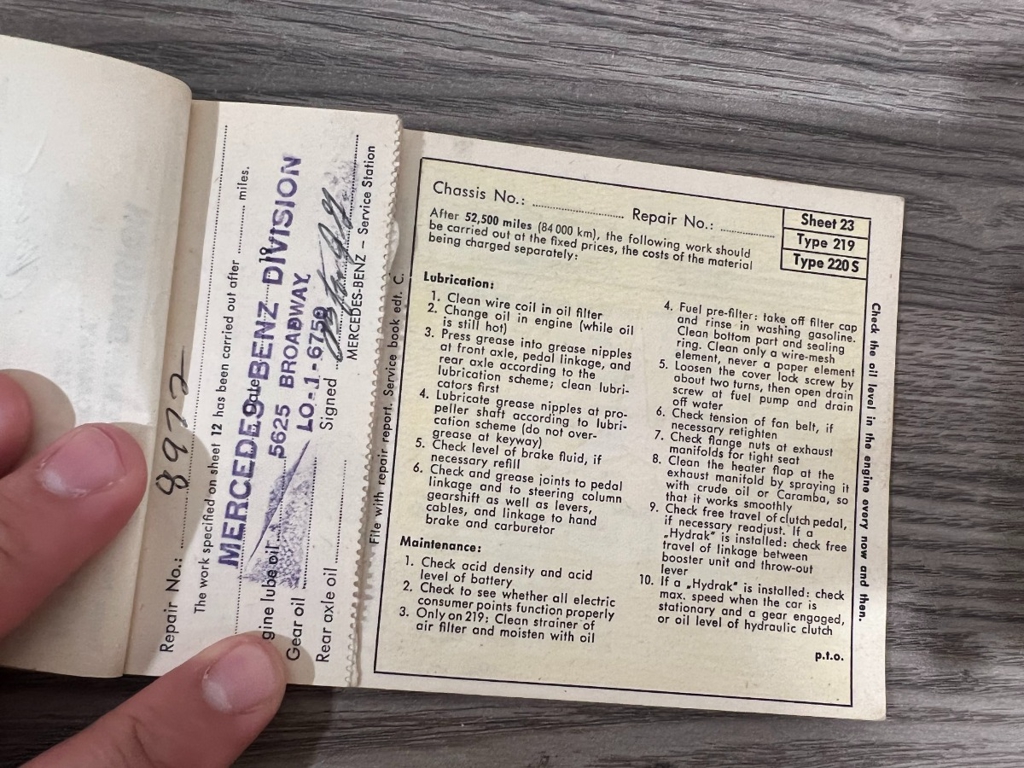 Repair No.: 8972
The work specified on sheet 12 has been carried out after ........ miles.
MERCEDES-BENZ DIVISION
5625 BROADWAY
LO.-1-6758
gine lube oil
Gear oil
Signed
Rear axle oil
MERCEDES-BENZ – Service Station
File with repair report. Service book edt. C.
Chassis No.: ........ Repair No.: ........
Sheet 23
Type 219
Type 220 S
After 52,500 miles (84 000 km), the following work should
be carried out at the fixed prices, the costs of the material
being charged separately:
Lubrication:
1. Clean wire coil in oil filter
2. Change oil in engine (while oil
is still hot)
3. Press grease into grease nipples
at front axle, pedal linkage, and
rear axle according to the
lubrication scheme; clean lubri-
cators first
4. Lubricate grease nipples at pro-
peller shaft according to lubri-
cation scheme (do not over-
grease at keyway)
5. Check level of brake fluid, if
necessary refill
6. Check and grease joints to pedal
linkage and to steering column
gearshift as well as levers,
cables, and linkage to hand
brake and carburetor
Maintenance:
1. Check acid density and acid
level of battery
2. Check to see whether all electric
consumer points function properly
3. Only on 219: Clean strainer of
air filter and moisten with oil
4. Fuel pre-filter: take off filter cap
and rinse in washing gasoline.
Clean bottom part and sealing
ring. Clean only a wire-mesh
element, never a paper element
5. Loosen the cover lock screw by
about two turns, then open drain
screw at fuel pump and drain
off water
6. Check tension of fan belt, if
necessary retighten
7. Check flange nuts at exhaust
manifolds for tight seat
8. Clean the heater flap at the
exhaust manifold by spraying it
with crude oil or Caramba, so
that it works smoothly
9. Check free travel of clutch pedal,
if necessary readjust. If a
„Hydrak“ is installed: check free
travel of linkage between
booster unit and throw-out
lever
10. If a „Hydrak“ is installed: check
max. speed when the car is
stationary and a gear engaged,
or oil level of hydraulic clutch
p.t.o.
Check the oil level in the engine every now and then.